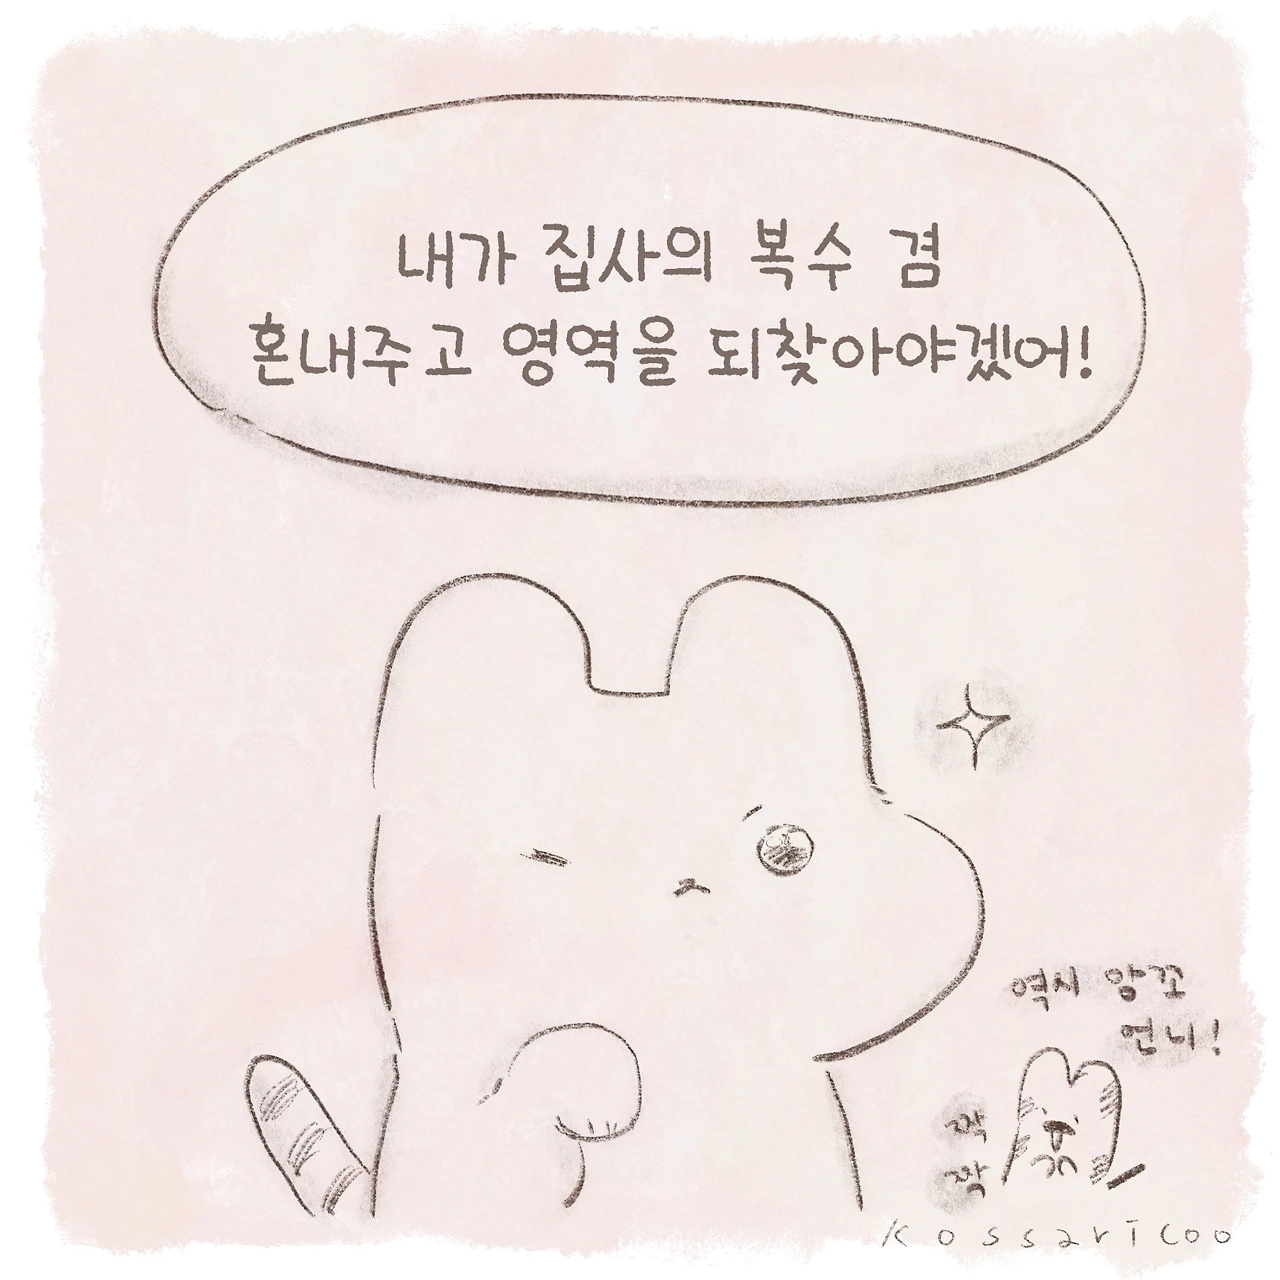 내가 집사의 복수 겸
혼내주고 영역을 되찾아야겠어!
역시 앙꼬
언니!
짝
짝
Kossaricoo